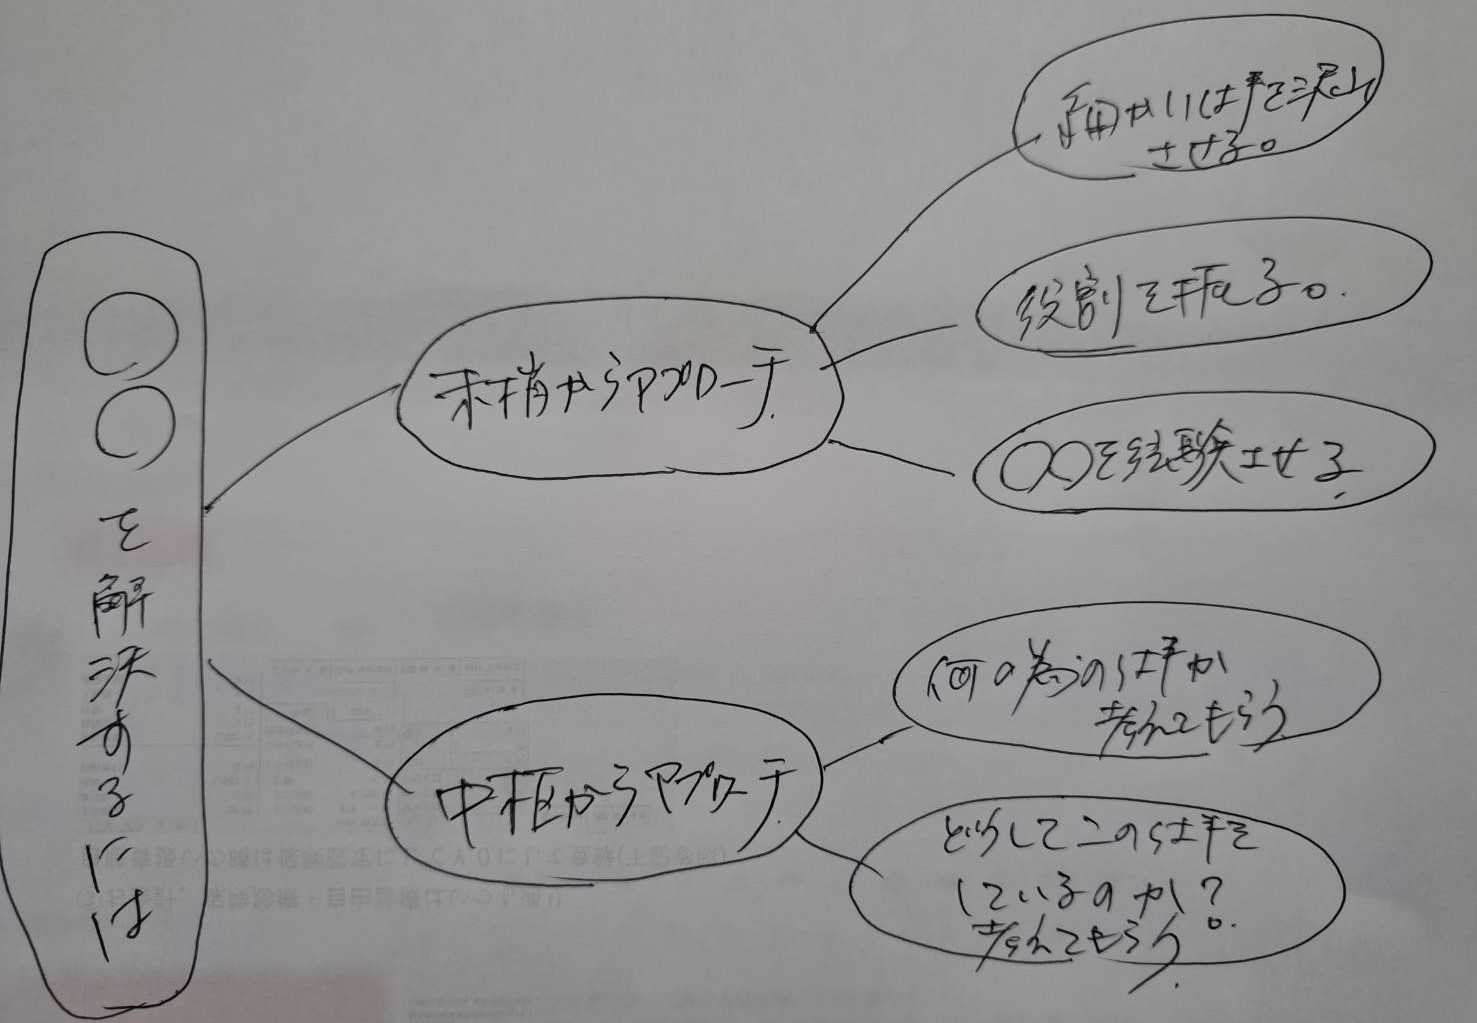 ○○を解決するには
末梢からアプローチ
細かい仕事を沢山
させる。
役割を振る。
○○を経験させる
中枢からアプローチ
何の為の仕事か
考えてもらう
どうしてこの仕事を
しているのか?
考えてもらう。